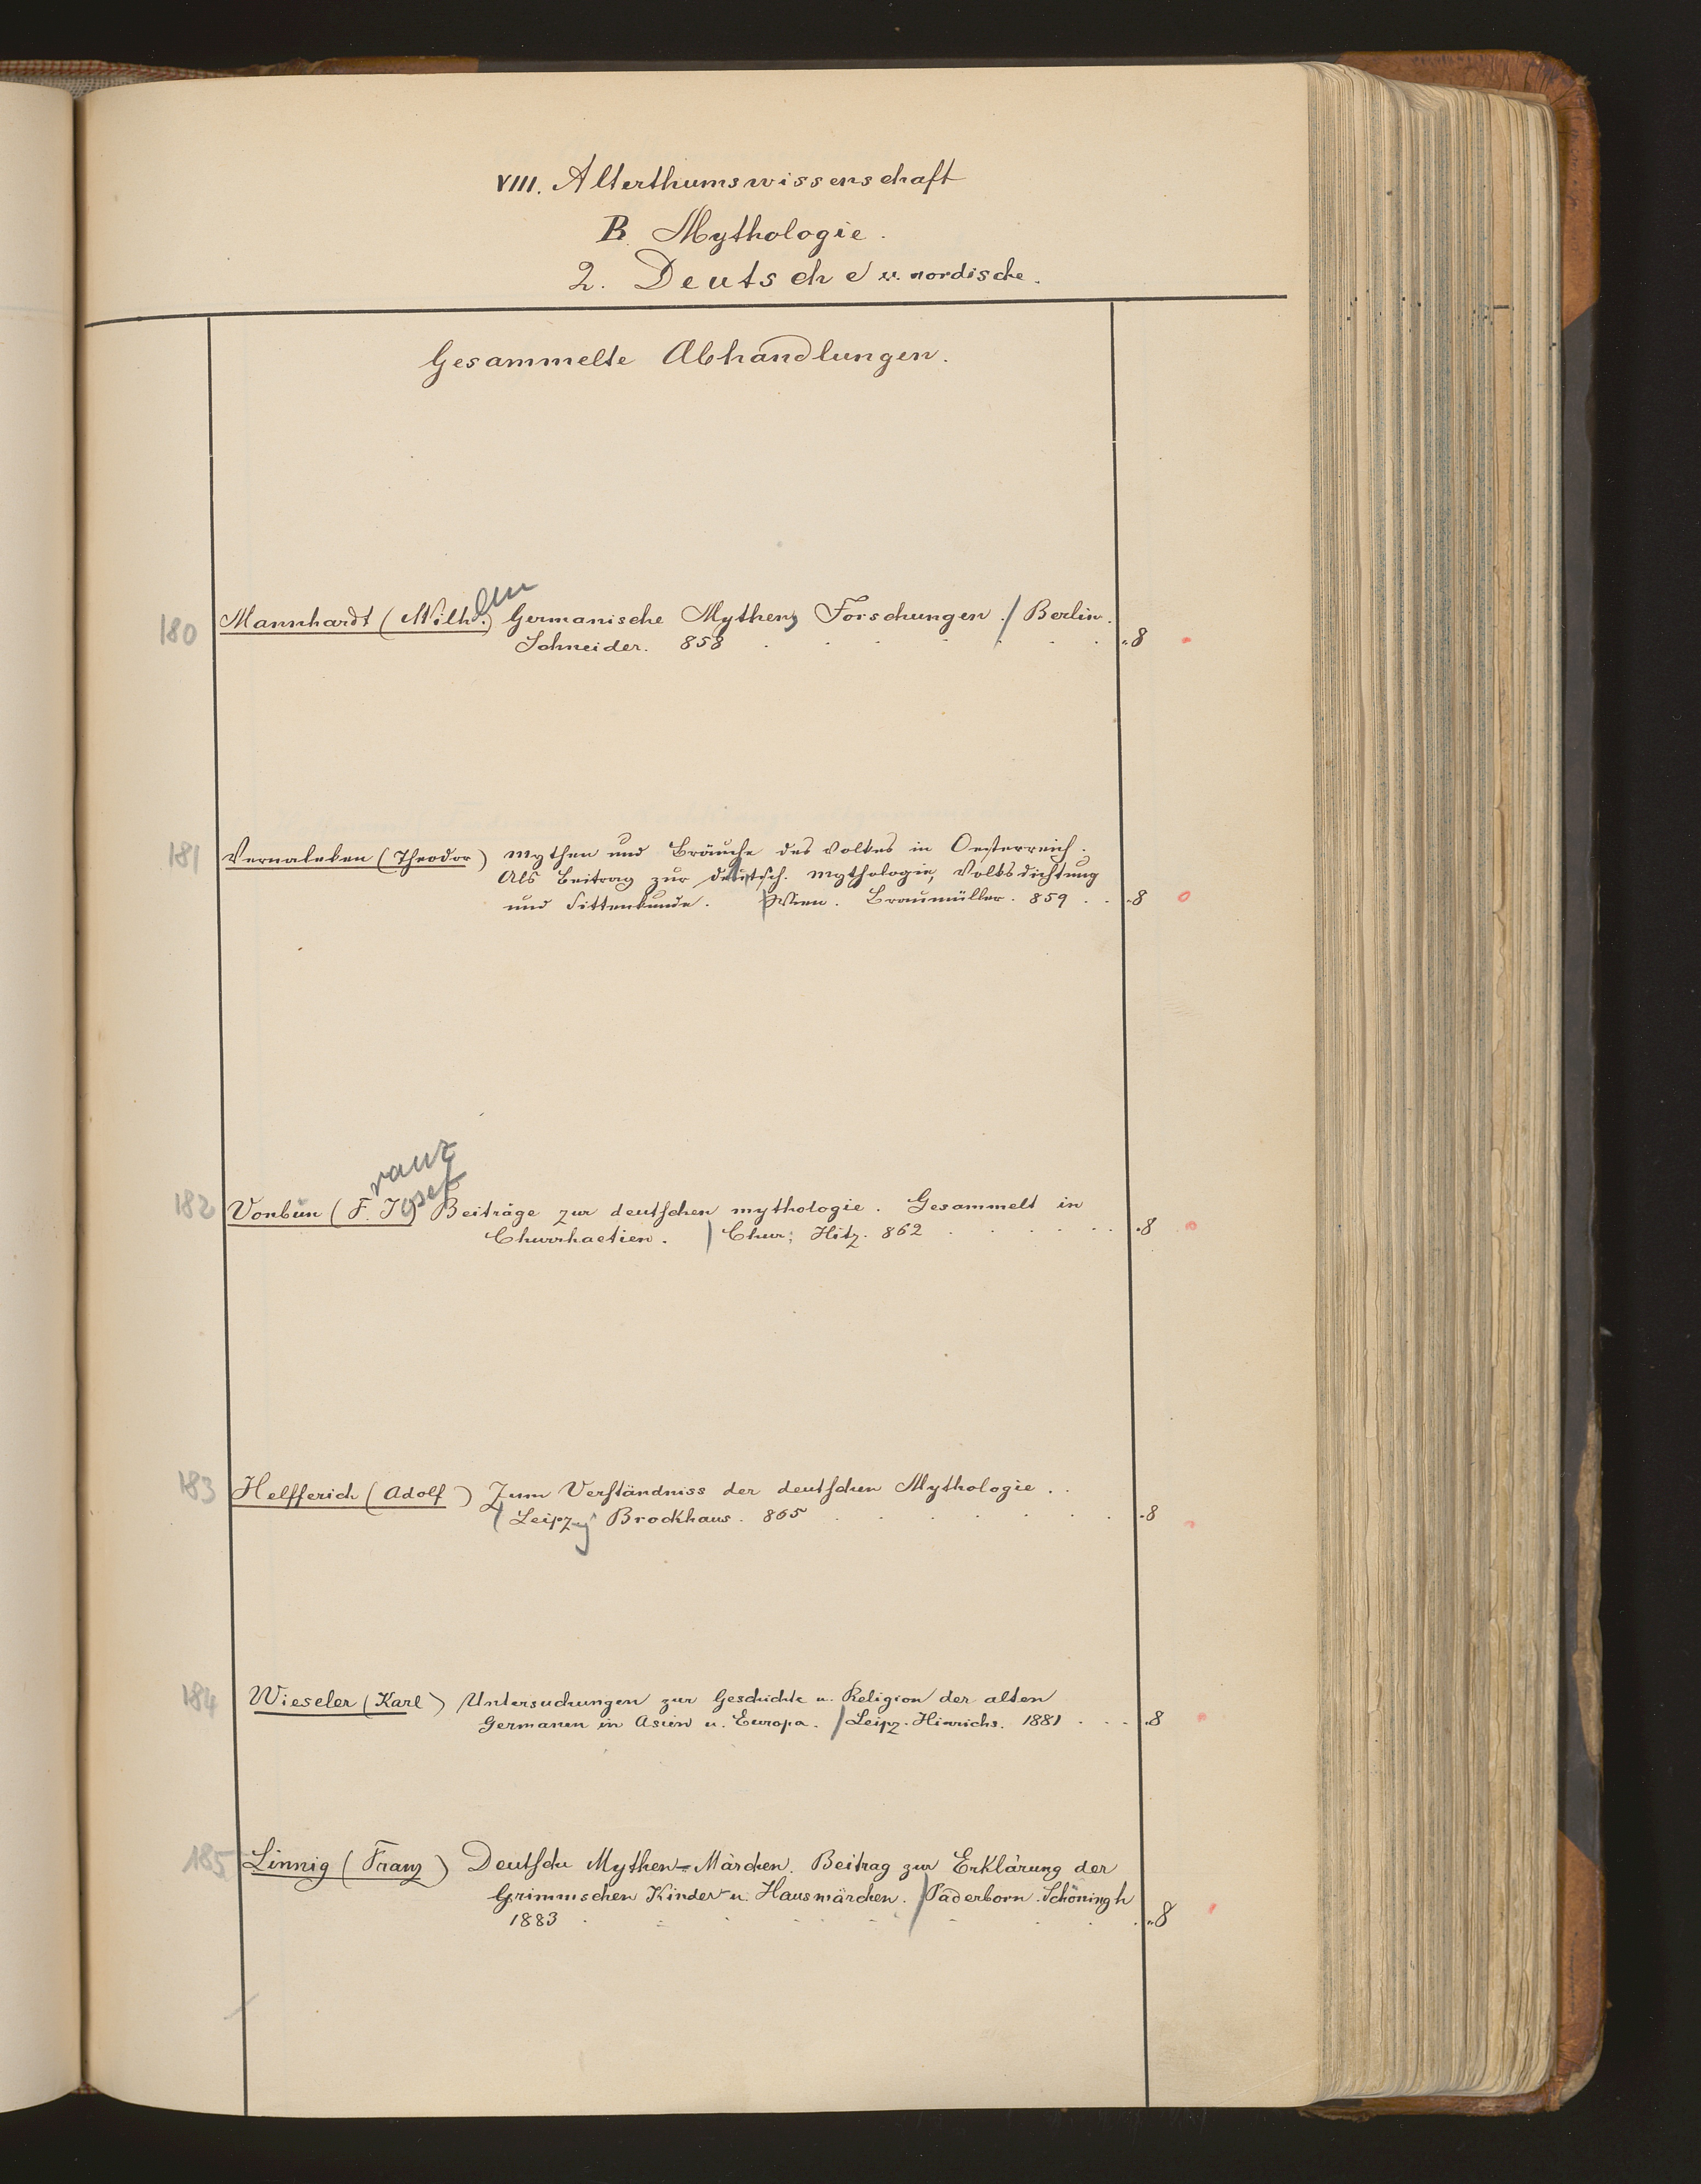 VIII. Alterthumswissenschaft
B. Mythologie.
2. Deutsche u. nordische.
Gesammelte Abhandlungen.
180 Mannhardt (Wilhelm) Germanische Mythen, Forschungen. / Berlin.
Schneider. 858 . . . . . . . 8
181 Vernaleken (Theodor) Mythen und Bräuche des Volkes in Oesterreich.
Als Beitrag zur deutsch. Mythologie, Volksdichtung
und Sittenkunde. / Wien. Braumüller. 859 . . . 8
182 Vonbun (Franz Josef) Beiträge zur deutschen Mythologie. Gesammelt in
Churrhaetien. / Chur; Hitz. 862 . . . . . . 8
183 Helfferich (Adolf) Zum Verständniss der deutschen Mythologie. .
/ Leipzig Brockhaus. 865 . . . . . . . 8
184 Wieseler (Karl) Untersuchungen zur Geschichte u. Religion der alten
Germanen in Asien u. Europa. / Leipz. Hinrichs. 1881 . . . . 8
185 Linnig (Franz) Deutsche Mythen-Märchen. Beitrag zur Erklärung der
Grimmschen Kinder- u. Hausmärchen. / Paderborn. Schöningh
1883 . . . . . . . . . 8